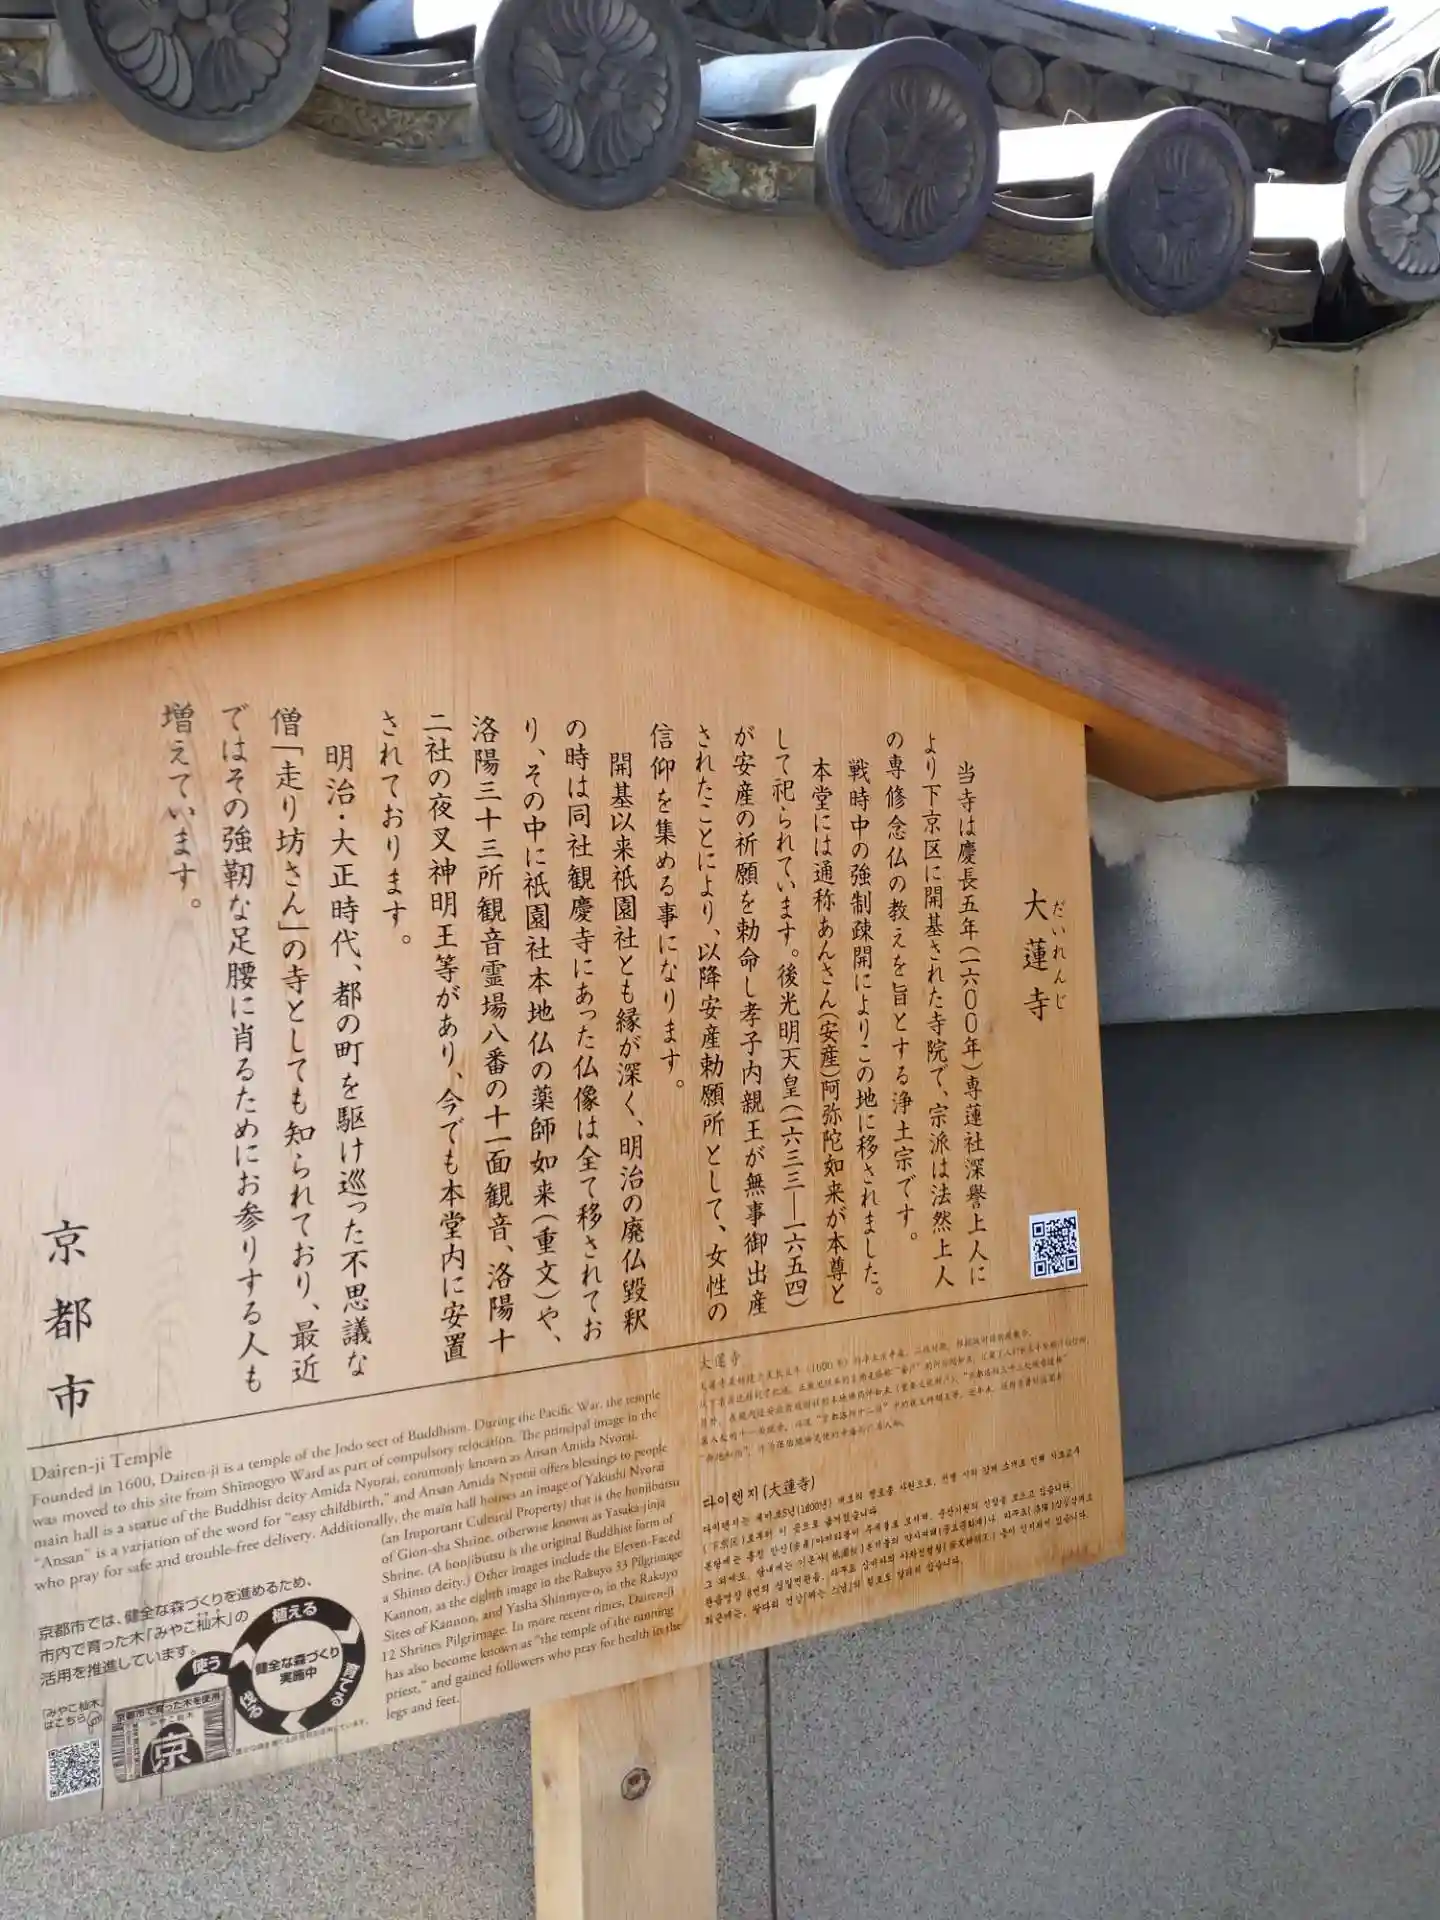 大蓮寺
だいれんじ
当寺は慶長五年(一六〇〇年)専蓮社深誉上人に
より下京区に開基された寺院で、宗派は法然上人
の専修念仏の教えを旨とする浄土宗です。
戦時中の強制疎開によりこの地に移されました。
本堂には通称あんさん(安産)阿弥陀如来が本尊と
して祀られています。後光明天皇(一六三三―一六五四)
が安産の祈願を勅命し孝子内親王が無事御出産
されたことにより、以降安産勅願所として、女性の
信仰を集める事になります。
開基以来祇園社とも縁が深く、明治の廃仏毀釈
の時は同社観慶寺にあった仏像は全て移されてお
り、その中に祇園社本地仏の薬師如来(重文)や、
洛陽三十三所観音霊場八番の十一面観音、洛陽十
二社の夜叉神明王等があり、今でも本堂内に安置
されております。
明治・大正時代、都の町を駆け巡った不思議な
僧「走り坊さん」の寺としても知られており、最近
ではその強靭な足腰に肖るためにお参りする人も
増えています。
京都市
Dairen-ji Temple
Founded in 1600, Dairen-ji is a temple of the Jodo sect of Buddhism. During the Pacific War, the temple
was moved to this site from Shimogyo Ward as part of compulsory relocation. The principal image in the
main hall is a statue of the Buddhist deity Amida Nyorai, commonly known as Ansan Amida Nyorai.
"Ansan" is a variation of the word for "easy childbirth," and Ansan Amida Nyorai offers blessings to people
who pray for safe and trouble-free delivery. Additionally, the main hall houses an image of Yakushi Nyorai
(an Important Cultural Property) that is the honjibutsu
of Gion-sha Shrine, otherwise known as Yasaka-jinja
Shrine. (A honjibutsu is the original Buddhist form of
a Shinto deity.) Other images include the Eleven-Faced
Kannon, as the eighth image in the Rakuyo 33 Pilgrimage
Sites of Kannon, and Yasha Shinmyo-o, in the Rakuyo
12 Shrines Pilgrimage. In more recent times, Dairen-ji
has also become known as "the temple of the running
priest," and gained followers who pray for health in the
legs and feet.
大蓮寺
다이렌지(大蓮寺)
京都市では、健全な森づくりを進めるため、
市内で育った木「みやこ杣木」の
活用を推進しています。
植える
育てる
伐る
使う
健全な森づくり
実施中
「みやこ杣木」
はこちら
京都市で育った木を使用
みやこ杣木
京